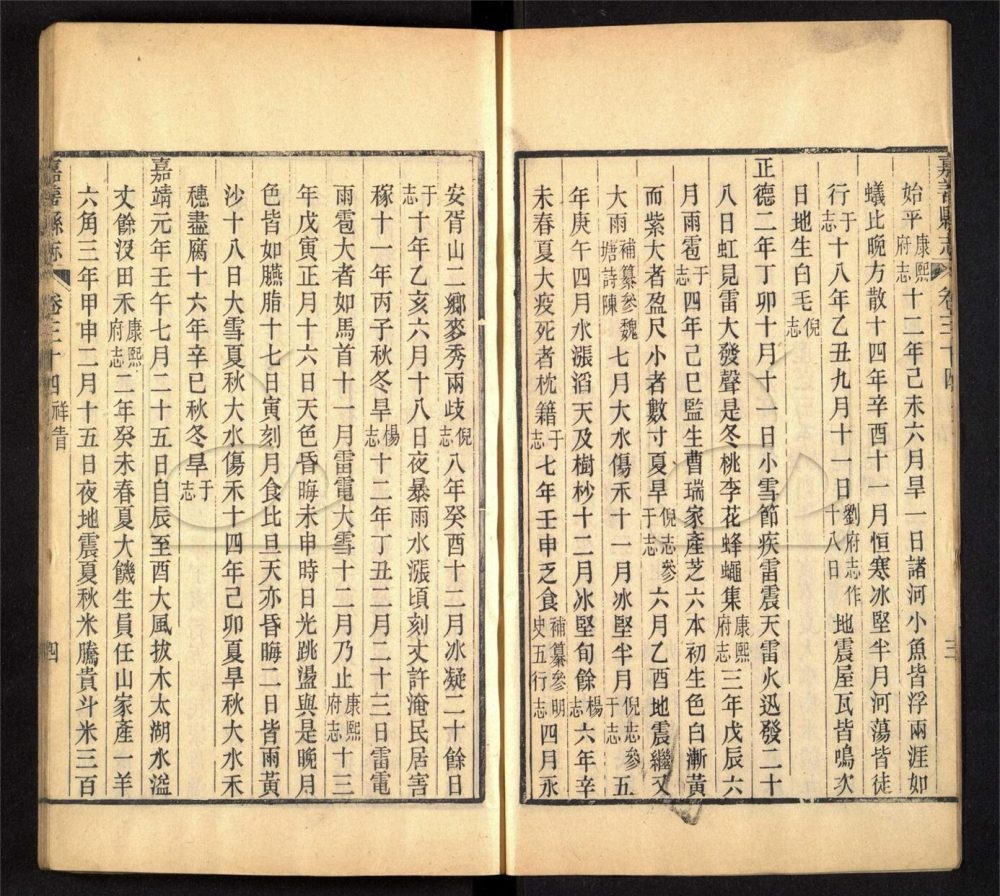 嘉善縣志 卷三十四 三
始平康熙府志十二年己未六月旱一日諸河小魚皆浮兩涯如
蟻比晚方散十四年辛酉十一月恒寒冰堅半月河蕩皆徒
行于志十八年乙丑九月十一日劉府志作十八日地震屋瓦皆鳴次
日地生白毛倪志
正德二年丁卯十月十一日小雪節疾雷震天雷火迅發二十
八日虹見雷大發聲是冬桃李花蜂蠅集康熙府志三年戊辰六
月雨雹于志四年己巳監生曹瑞家產芝六本初生色白漸黃
而紫大者盈尺小者數寸夏旱倪志參于志六月乙酉地震繼又
大雨補纂參魏塘詩陳七月大水傷禾十一月冰堅半月倪志參于志五
年庚午四月水漲滔天及樹杪十二月冰堅旬餘楊志六年辛
未春夏大疫死者枕籍于志七年壬申乏食補纂參明史五行志四月永
安胥山二鄉麥秀兩歧倪志八年癸酉十二月冰凝二十餘日
于志十年乙亥六月十八日夜暴雨水漲頃刻丈許淹民居害
稼十一年丙子秋冬旱楊志十二年丁丑二月二十三日雷電
雨雹大者如馬首十一月雷電大雪十二月乃止康熙府志十三
年戊寅正月十六日天色昏晦未申時日光跳盪與是晚月
色皆如臙脂十七日寅刻月食比旦天亦昏晦二日皆雨黃
沙十八日大雪夏秋大水傷禾十四年己卯夏旱秋大水禾
穗盡腐十六年辛巳秋冬旱于志
嘉靖元年壬午七月二十五日自辰至酉大風拔木太湖水溢
丈餘沒田禾康熙府志二年癸未春夏大饑生員任山家產一羊
六角三年甲申二月十五日夜地震夏秋米騰貴斗米三百
嘉善縣志 卷三十四 祥眚 四